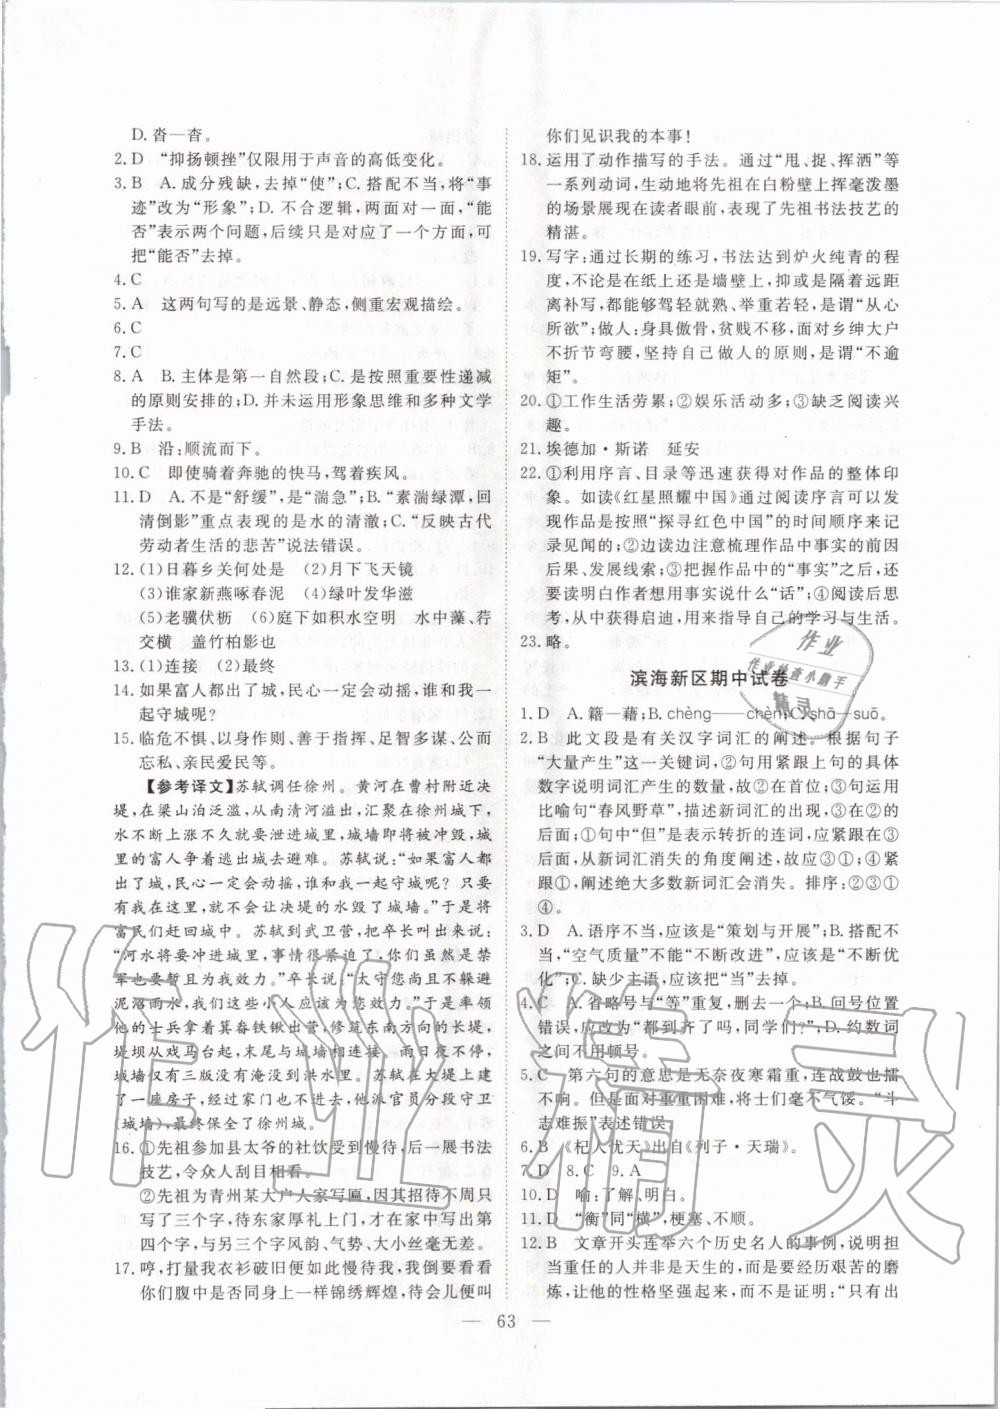 D. 沓—杳。
2. D “抑扬顿挫”仅限用于声音的高低变化。
3. B A. 成分残缺,去掉“使”;C. 搭配不当,将“事
迹”改为“形象”;D. 不合逻辑,两面对一面,“能
否”表示两个问题,后续只是对应了一个方面,可
把“能否”去掉。
4. C
5. A 这两句写的是远景、静态,侧重宏观描绘。
6. C
7. C
8. A B. 主体是第一自然段;C. 是按照重要性递减
的原则安排的;D. 并未运用形象思维和多种文学
手法。
9. B 沿:顺流而下。
10. C 即使骑着奔驰的快马,驾着疾风。
11. D A. 不是“舒缓”,是“湍急”;B. “素湍绿潭,回
清倒影”重点表现的是水的清澈;C. “反映古代
劳动者生活的悲苦”说法错误。
12. (1)日暮乡关何处是 (2)月下飞天镜
(3)谁家新燕啄春泥 (4)绿叶发华滋
(5)老骥伏枥 (6)庭下如积水空明 水中藻、荇
交横 盖竹柏影也
13. (1)连接 (2)最终
14. 如果富人都出了城,民心一定会动摇,谁和我一
起守城呢?
15. 临危不惧、以身作则、善于指挥、足智多谋、公而
忘私、亲民爱民等。
【参考译文】苏轼调任徐州。黄河在曹村附近决
堤,在梁山泊泛滥,从南清河溢出,汇聚在徐州城下,
水不断上涨不久就要泄进城里,城墙即将被冲毁,城
里的富人争着逃出城去避难。苏轼说:“如果富人都
出了城,民心一定会动摇,谁和我一起守城呢? 只要
有我在这里,就不会让决堤的水毁了城墙。”于是将
富民们赶回城中。苏轼到武卫营,把卒长叫出来说:
“河水将要冲进城里,事情很紧迫了,即使是禁
军也要暂且为我效力。”卒长说:“太守您尚且不躲避
泥沼雨水,我们这些小人应当为您效力。”于是率领
他的士兵拿着箕畚铁锹出营,修筑东南方向的长堤,
堤坝从戏马台起,末尾与城墙相连接。雨日夜不停,
城墙仅有三版没有淹没到洪水里。苏轼在大堤上建
了一座房子,经过家门也不入,他派官员分段守卫
(城墙),最终保全了徐州城。
16. ①先祖参加县太爷的社饮受到慢待,后一展书法
技艺,令众人刮目相看。
②先祖为青州某大户人家写匾,因其招待不周只
写了三个字,待东家厚礼上门,才在家中写出第
四个字,与前三个字风韵、气势、大小丝毫无差。
17. 哼,打量我衣衫破旧便如此慢待我,看起来好像
你们腹中是否同身上一样锦绣辉煌,待会儿便叫
你们见识我的本事!
18. 运用了动作描写的手法。通过“甩、捉、挥洒”等
一系列动词,生动地将先祖在白粉壁上挥毫泼墨
的场景展现在读者眼前,表现了先祖书法技艺的
精湛。
19. 写字:通过长期的练习,书法达到炉火纯青的程
度,不论是在纸上还是墙壁上,抑或是隔着远近
离补写,都能轻车就熟、举重若轻,是谓“从心
所欲”;做人:身具傲骨,贫贱不移,面对乡绅大户
不折节弯腰,坚持自己做人的原则,是谓“不逾
矩”。
20. ①工作生活劳累;②娱乐活动多;③缺乏阅读兴
趣。
21. 埃德加·斯诺 延安
22. ①利用序言、目录等迅速获得对作品的整体印
象。如读《红星照耀中国》通过阅读序言可以发
现作品是按照“探寻红色中国”的时间顺序来记
录见闻的;②边读边注意梳理作品中事实的前因
后果、发展线索;③把握作品中的“事实”之后,还
要读明白作者想用事实说什么“话”;④阅读后思
考,从中获得启迪,用于指导自己的学习与生活。
23. 略。
滨海新区期中试卷
1. D A. 籍—藉;B. chèng——chèn;C. shā—suō。
2. B 此文段是有关汉字词汇的阐述。根据句子
“大量产生”这一关键词,②句紧跟上句,用具体
数字说明词汇产生的数量,应在首位;③句运用
比喻句“春风野草”,描述新词汇的出现,在②的
后面;①句中“但”是表示转折的连词,应紧跟③后
面,从新词汇消失的角度阐述,故应③①;④紧
跟①,阐述绝大多数新词汇会消失。排序:②③①
④。
3. D A. 语序不当,应该是“策划与开展”;B. 搭配不
当,“空气质量”不能“不断改进”,应该是“不断优
化”;C. 缺少主语,应该把“当”去掉。
4. C A. 省略号与“等”重复,删去一个;B. 问号位置
错误,应改为“都到齐了吗,同学们?”;D. 约数词
之间不用顿号。
5. C 第六句的意思是无奈夜寒霜重,连战鼓也擂
不响。但是面对重重困难,将士们毫不气馁。“斗
志难振”表述错误。
6. B 《杞人忧天》出自《列子·天瑞》。
7. D 8. C 9. A
10. D 喻:了解、明白。
11. D “衡”同“横”,梗塞、不顺。
12. B 文章开头连举六个历史名人的事例,说明这
担当重任的人并非是天生的,而是要经过艰苦的磨
炼,让他的性格坚强起来,而不是证明:“只有出
63
作业
作业检查小助手
精灵
作业精灵